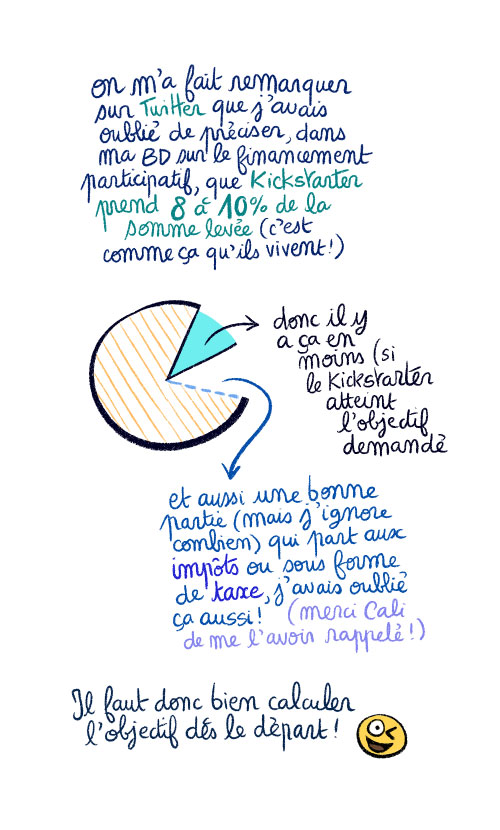 on m'a fait remarquer
sur Twitter que j'avais
oublié de préciser, dans
ma BD sur le financement
participatif, que Kickstarter
prend 8 à 10% de la
somme levée (c'est
comme ça qu'ils vivent!)
donc il y
a ça en
moins (si
le Kickstarter
atteint
l'objectif
demandé
et aussi une bonne
partie (mais j'ignore
combien) qui part aux
impôts ou sous forme
de taxe, j'avais oublié
ça aussi! (merci Cali
de me l'avoir rappelé!)
Il faut donc bien calculer
l'objectif dés le départ!